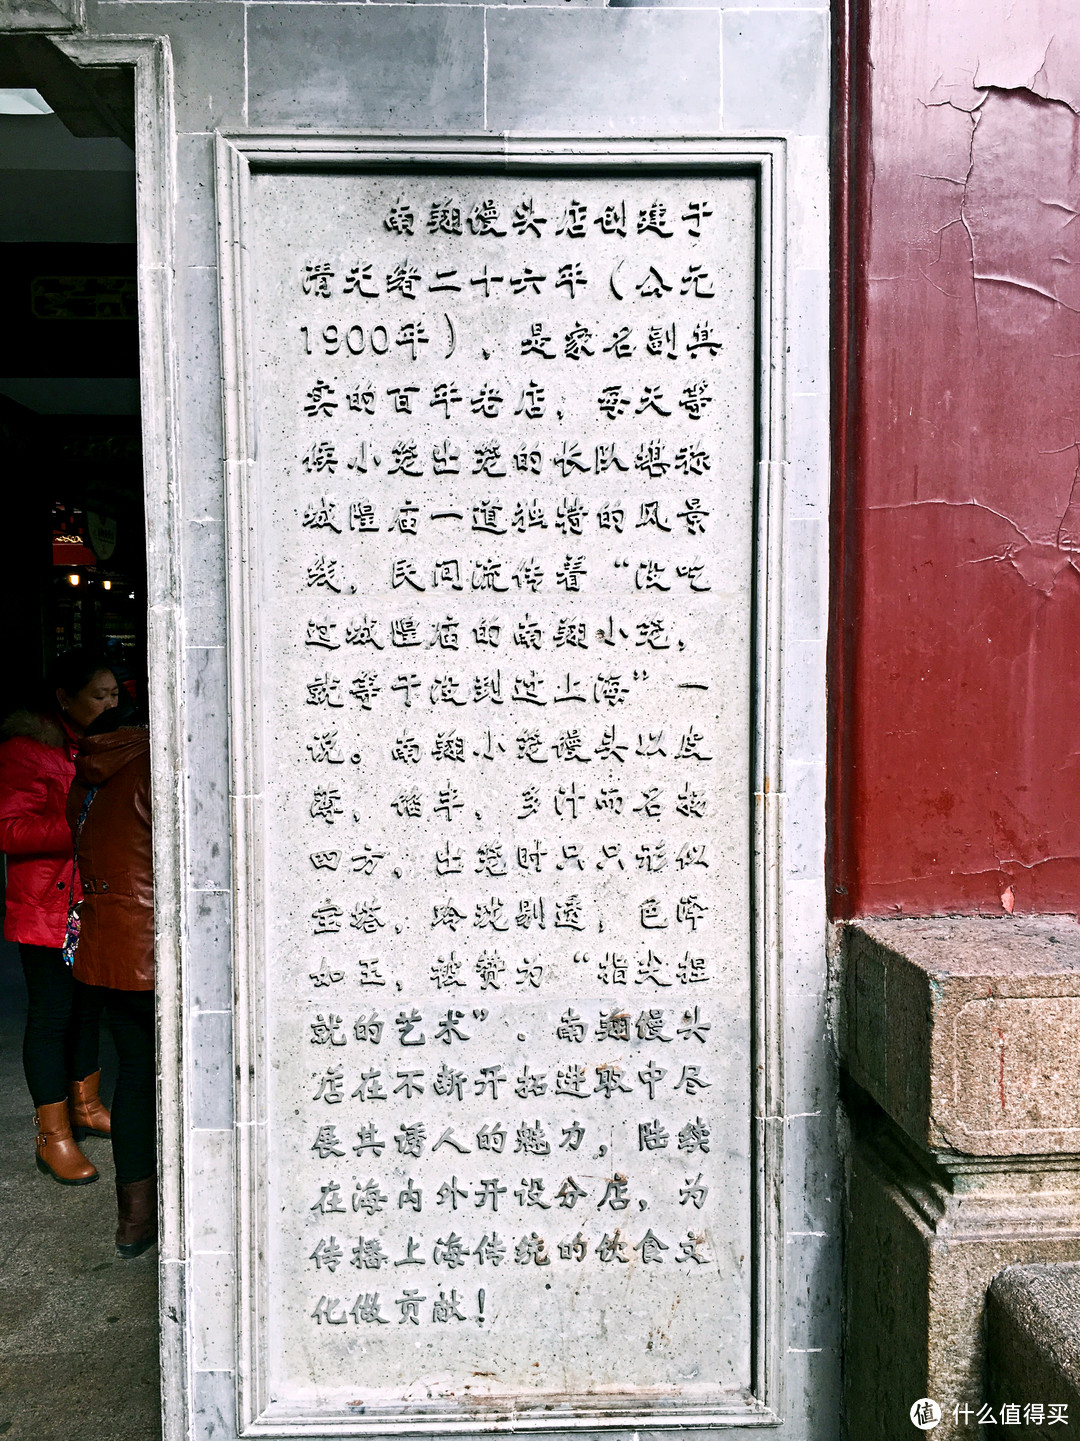 南翔馒头店创建于
清光绪二十六年（公元
1900年），是家名副其
实的百年老店，每天等
候小笼出笼的长队堪称
城隍庙一道独特的风景
线，民间流传着“没吃
过城隍庙的南翔小笼，
就等于没到过上海”一
说。南翔小笼馒头以皮
薄，馅丰，多汁而名扬
四方，出笼时只只形似
宝塔，玲珑剔透，色泽
如玉，被赞为“指尖捏
就的艺术”．南翔馒头
店在不断开拓进取中尽
展其诱人的魅力，陆续
在海内外开设分店，为
传播上海传统的饮食文
化做贡献！
值 什么值得买